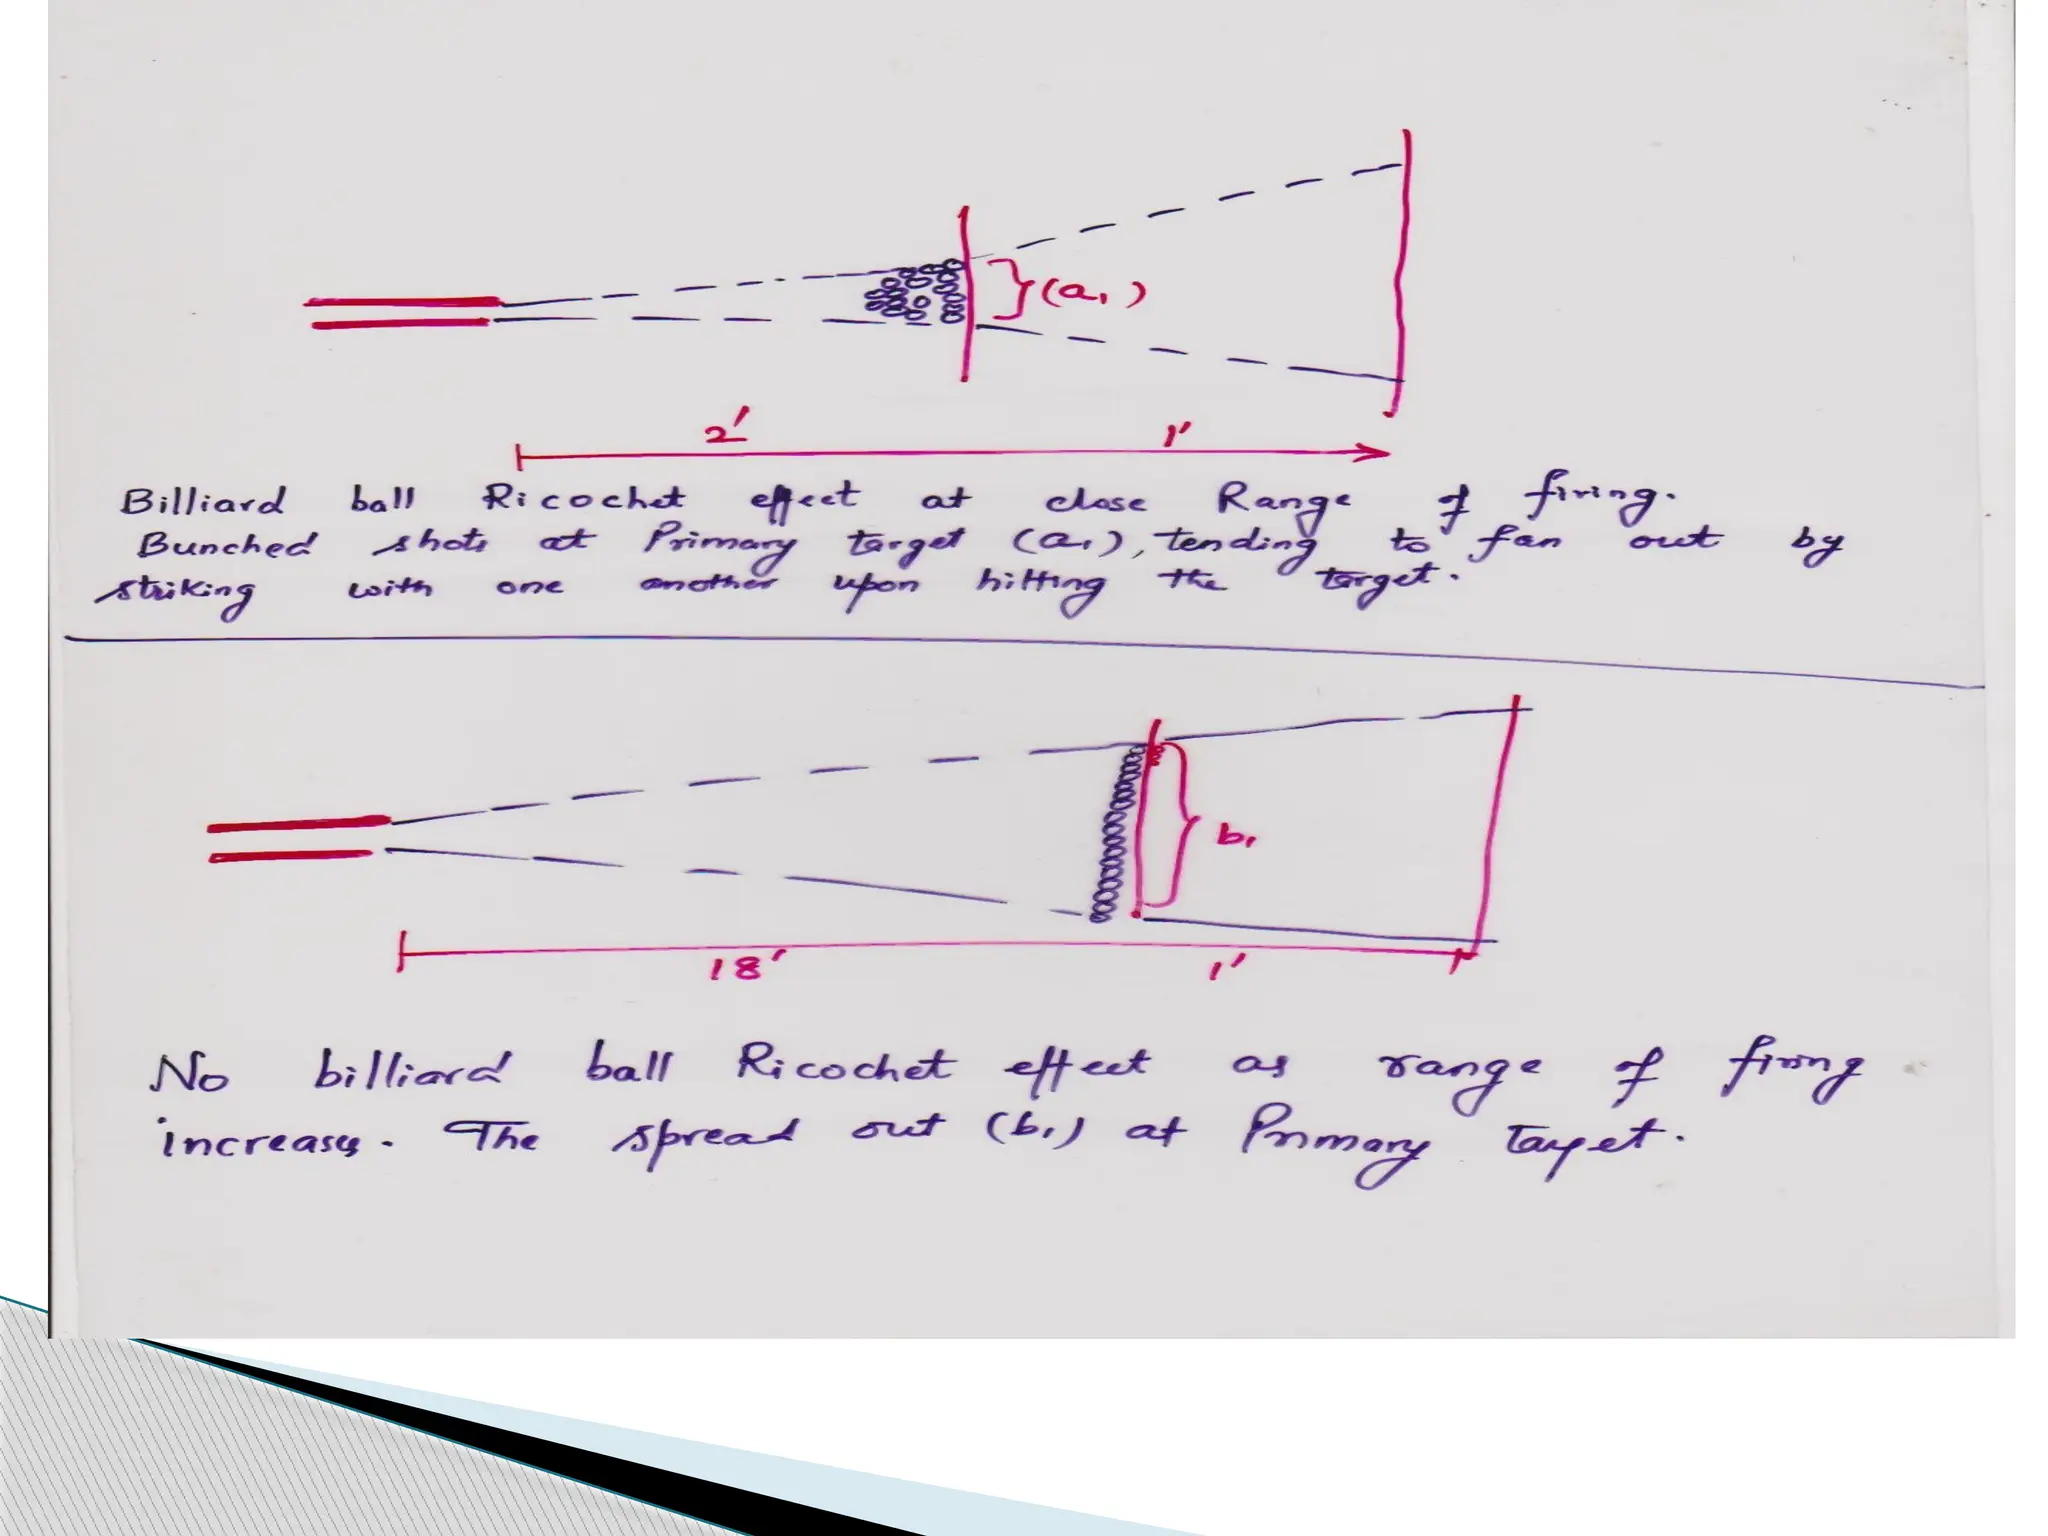 (a₁)
2' 1'
Billiard ball Ricochet effect at close Range of firing.
Bunched shots at Primary target (a₁), tending to fan out by
striking with one another upon hitting the target.
b₁
18' 1'
No billiard ball Ricochet effect as range of firing
increases. The spread out (b₁) at Primary Target.